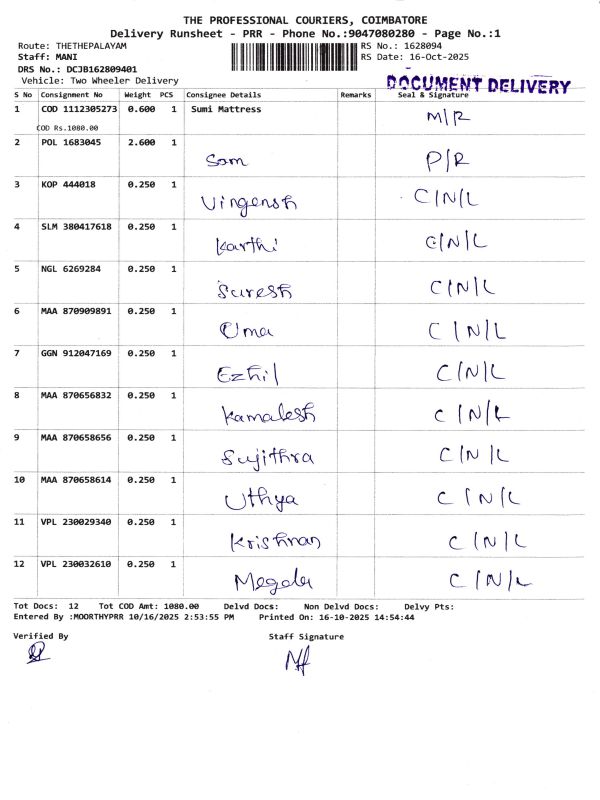 THE PROFESSIONAL COURIERS, COIMBATORE
Delivery Runsheet - PRR - Phone No.:9047080280 - Page No.:1
Route: THETHEPALAYAM RS No.: 1628094
Staff: MANI RS Date: 16-Oct-2025
DRS No.: DCJB162809401
Vehicle: Two Wheeler Delivery DOCUMENT DELIVERY
S No Consignment No Weight PCS Consignee Details Remarks Seal & Signature
1 COD 1112305273 0.600 1 Sumi Mattress M/R
COD Rs.1080.00
2 POL 1683045 2.600 1 Som P/R
3 KOP 444018 0.250 1 Vingensh C/N/L
4 SLM 380417618 0.250 1 Karthi C/N/L
5 NGL 6269284 0.250 1 Suresh C/N/L
6 MAA 870909891 0.250 1 Uma C/N/L
7 GGN 912047169 0.250 1 Ezhil C/N/L
8 MAA 870656832 0.250 1 Kamalesh C/N/L
9 MAA 870658656 0.250 1 Sujithra C/N/L
10 MAA 870658614 0.250 1 Uthya C/N/L
11 VPL 230029340 0.250 1 Krishnan C/N/L
12 VPL 230032610 0.250 1 C/N/L
Tot Docs: 12 Tot COD Amt: 1080.00 Delvd Docs: Non Delvd Docs: Delvy Pts:
Entered By :MOORTHYPRR 10/16/2025 2:53:55 PM Printed On: 16-10-2025 14:54:44
Verified By Staff Signature